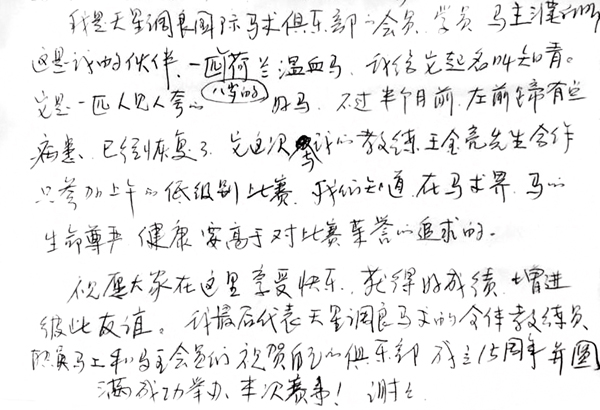 我是天星调良国际马术俱乐部的会员、学员、马主
这是我的伙伴、一匹荷兰温血马、我给它起名叫知青。
八岁的
它是一匹人见人夸的好马、不过半个月前、左前蹄有点
病患、已经恢复了、它这次与我的教练王金亮先生合作
只参加上午的低级别比赛、我们知道、在马术界、马的
生命尊严、健康、要高于对比赛荣誉的追求的。
祝愿大家在这里享受快乐、获得好成绩、增进
彼此友谊。我最后代表天星调良马术的全体教练员
马主会员们祝贺自己的俱乐部成立15周年并圆
满成功举办、本次赛事！谢谢